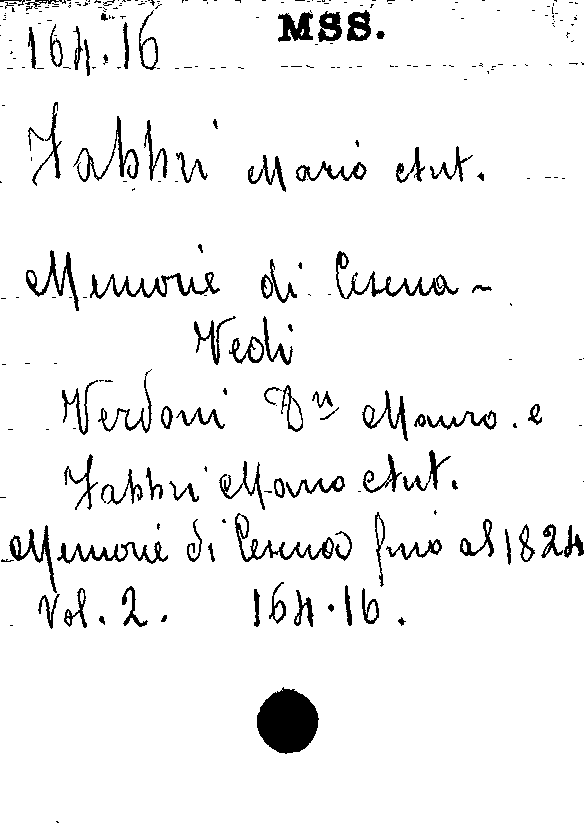 164.16 MSS.
Fabbri Mario Ant.
Memorie di Cesena -
Vedi
Verdoni Dn Mauro. e
Fabbri Mario Ant.
Memorie di Cesena fino al 1824
Vol. 2. 164.16.